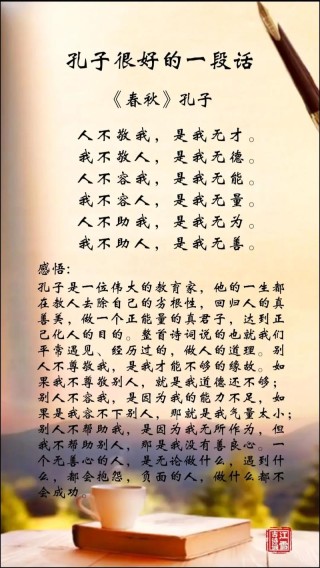 孔子很好的一段话
《春秋》孔子
人不敬我，是我无才。
我不敬人，是我无德。
人不容我，是我无能。
我不容人，是我无量。
人不助我，是我无为。
我不助人，是我无善。
感悟：
孔子是一位伟大的教育家，他的一生都
在教人去除自己的劣根性，回归人的真
善美，做一个正能量的真君子，达到正
己化人的目的。整首诗词说的也就我们
平常遇见、经历过的，做人的道理。别
人不尊敬我，是我才能不够的缘故。如
果我不尊敬别人，就是我道德还不够；
别人不容我，是因为我的能力不足，如
果是我容不下别人，那就是我气量太小；
别人不帮助我，是因为我无所作为，但
我不帮助别人，那是我没有善良心。一
个无善心的人，是无论做什么，遇到什
么，都会抱怨，负面的人，做什么都不
会成功。